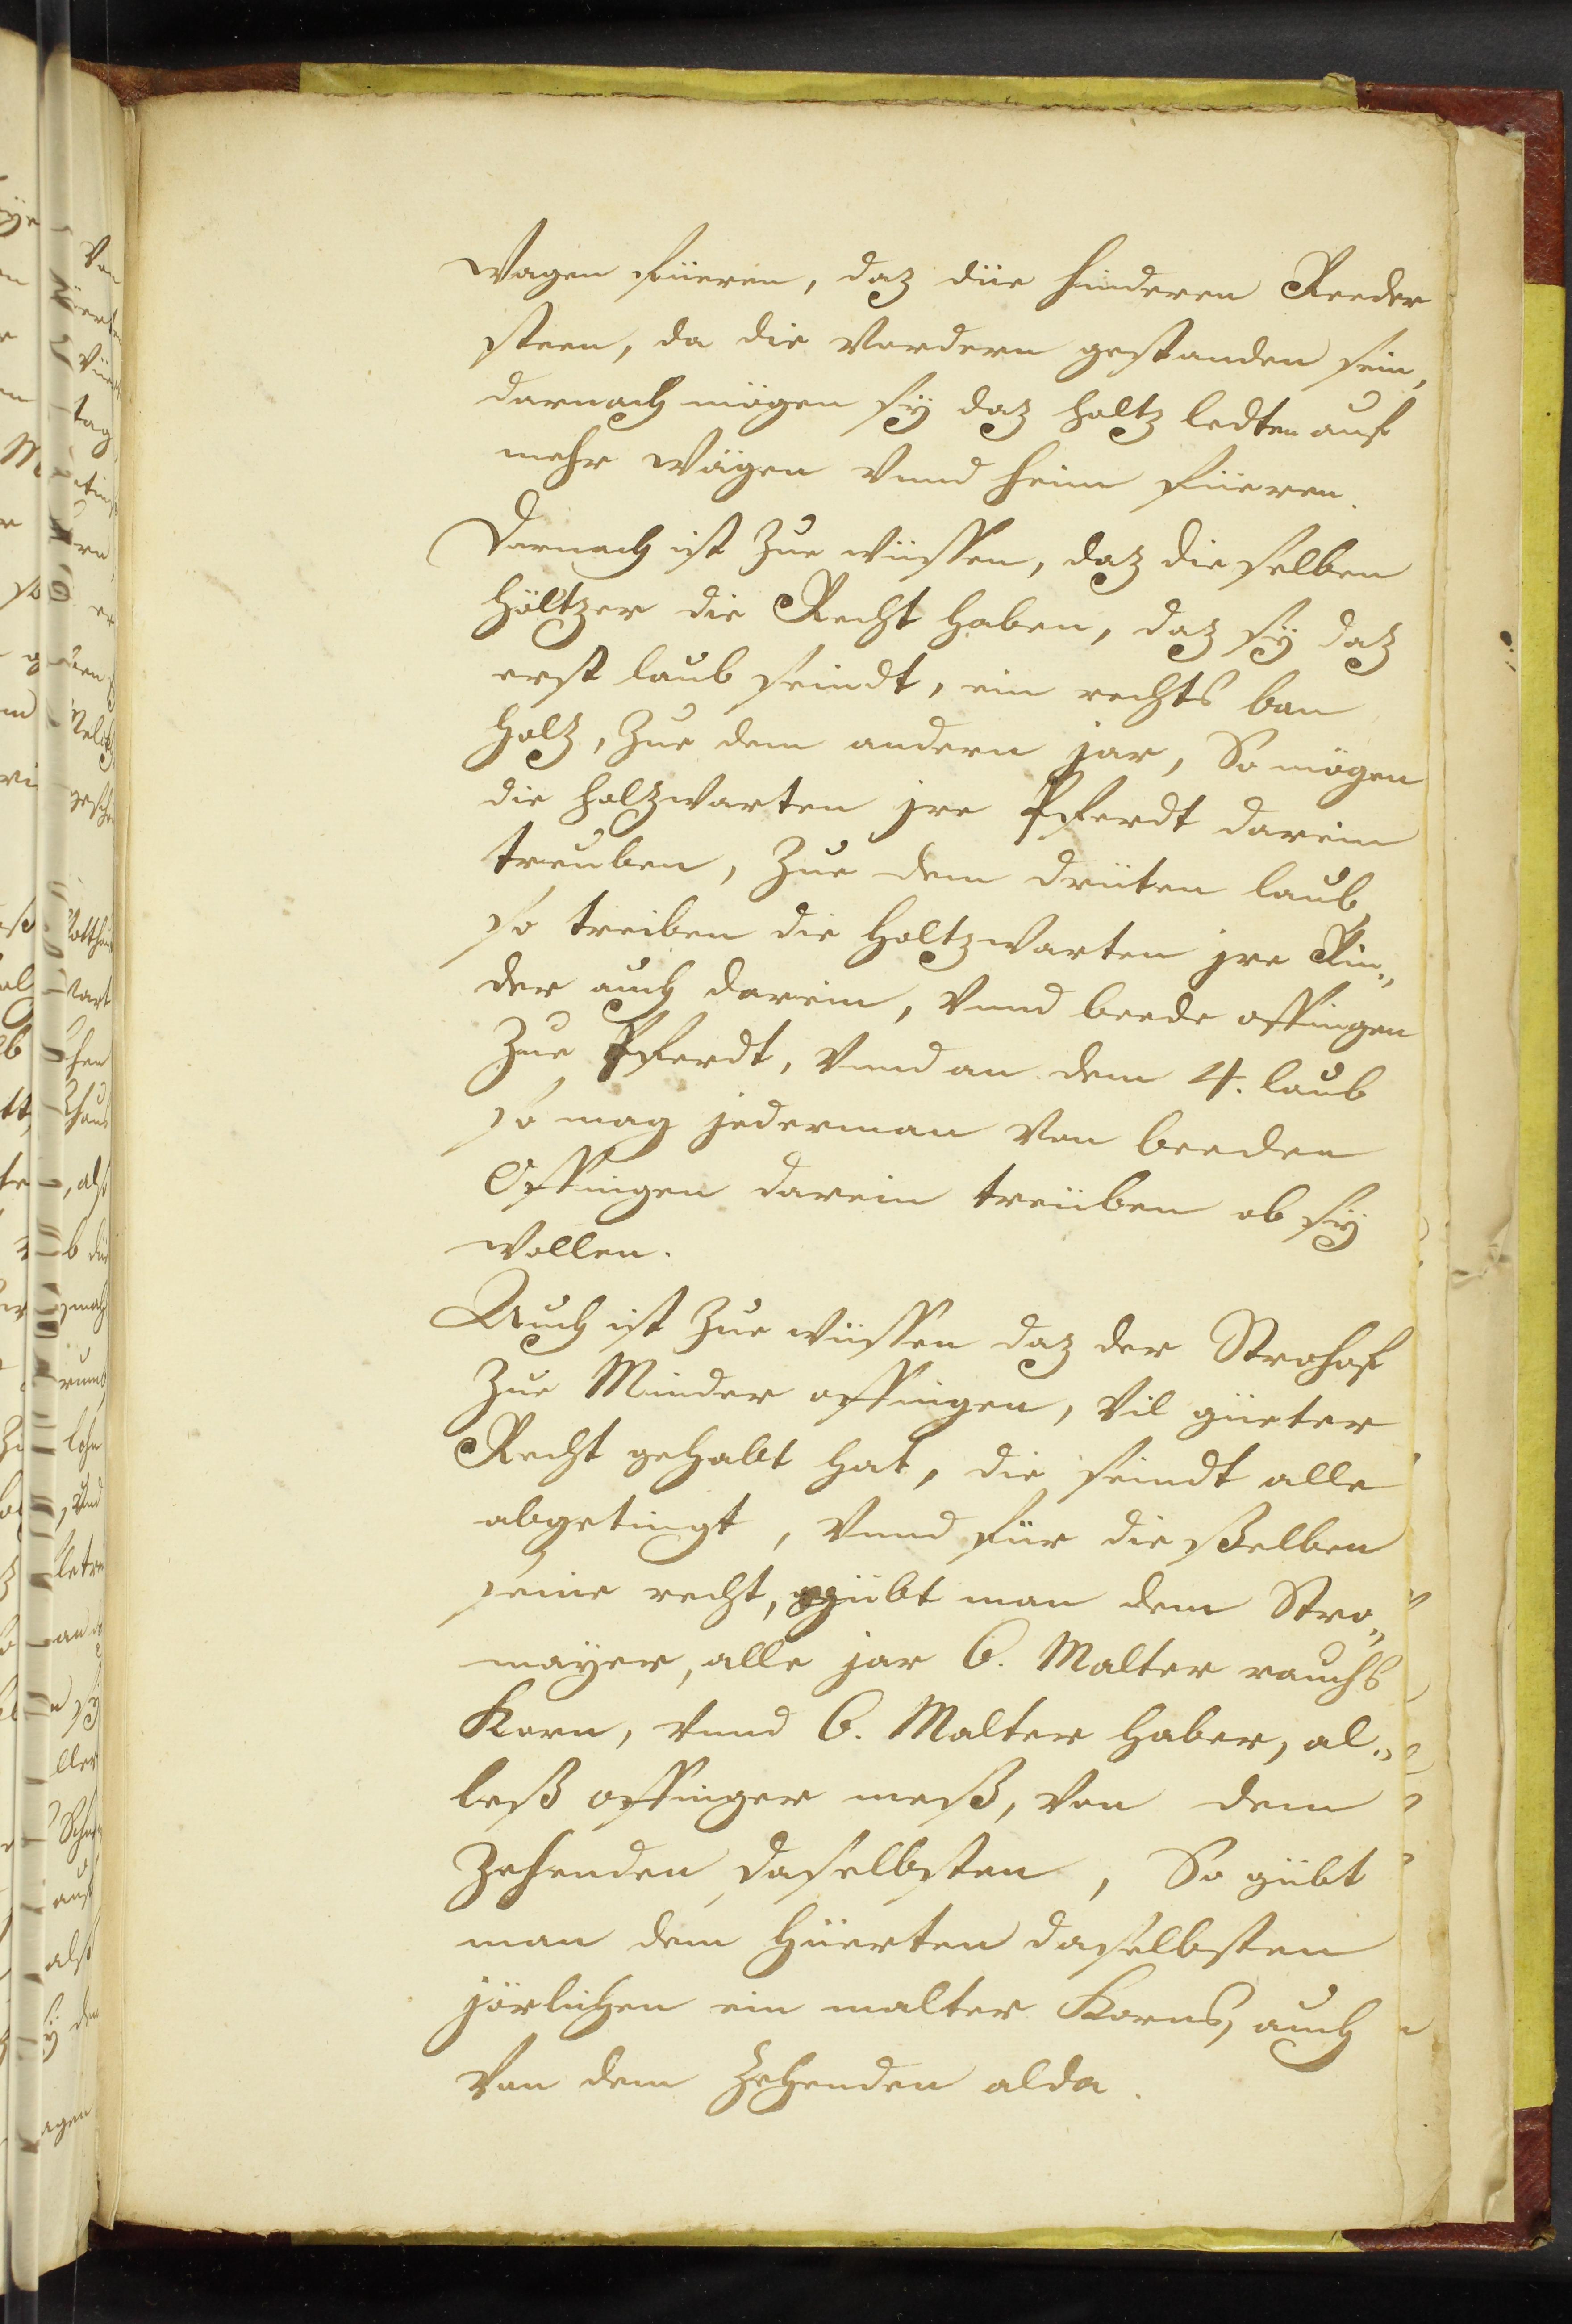 Wagen füeren, daz die hinderen Reeder
steen, da die Vordern gestanden sein,
darnach mögen sÿ daz holtz ledten auf
mehr Wägen Vnnd heim füeren.
Darnach ist Zue wüssen, daz die selben
höltzer die Recht haben, daz sÿ daz
erst laub seindt, ein rechts ban
holz, Zue dem andern jar, So mögen
die holzwarten jre Pferdt darein
treuben, Zue dem driten laub,
so treiben die holtzwarten jre Rin„
der auch darein, Vnnd beede offingen
Zue Pferdt, Vnnd an dem 4. laub
so mag jederman Von beeden
Offingen darein treiben ob sÿ
wollen.
Auch ist Zue wüssen daz der Strohof
Zue Minder offingen, Vil güeter
Recht gehabt hat, die seindt alle
abgetingt, Vnnd für die ßelben
seine recht, gübt man dem Stro„
mayer, alle jar 6. Malter rauchs
Korn, Vnnd 6. Malter haber, al„
leß offinger meß, Von dem
Zehenden daselbsten, So gübt
man dem hüerten daselbsten
järlichen ein malter Korns, auch
Von dem Zehenden alda.